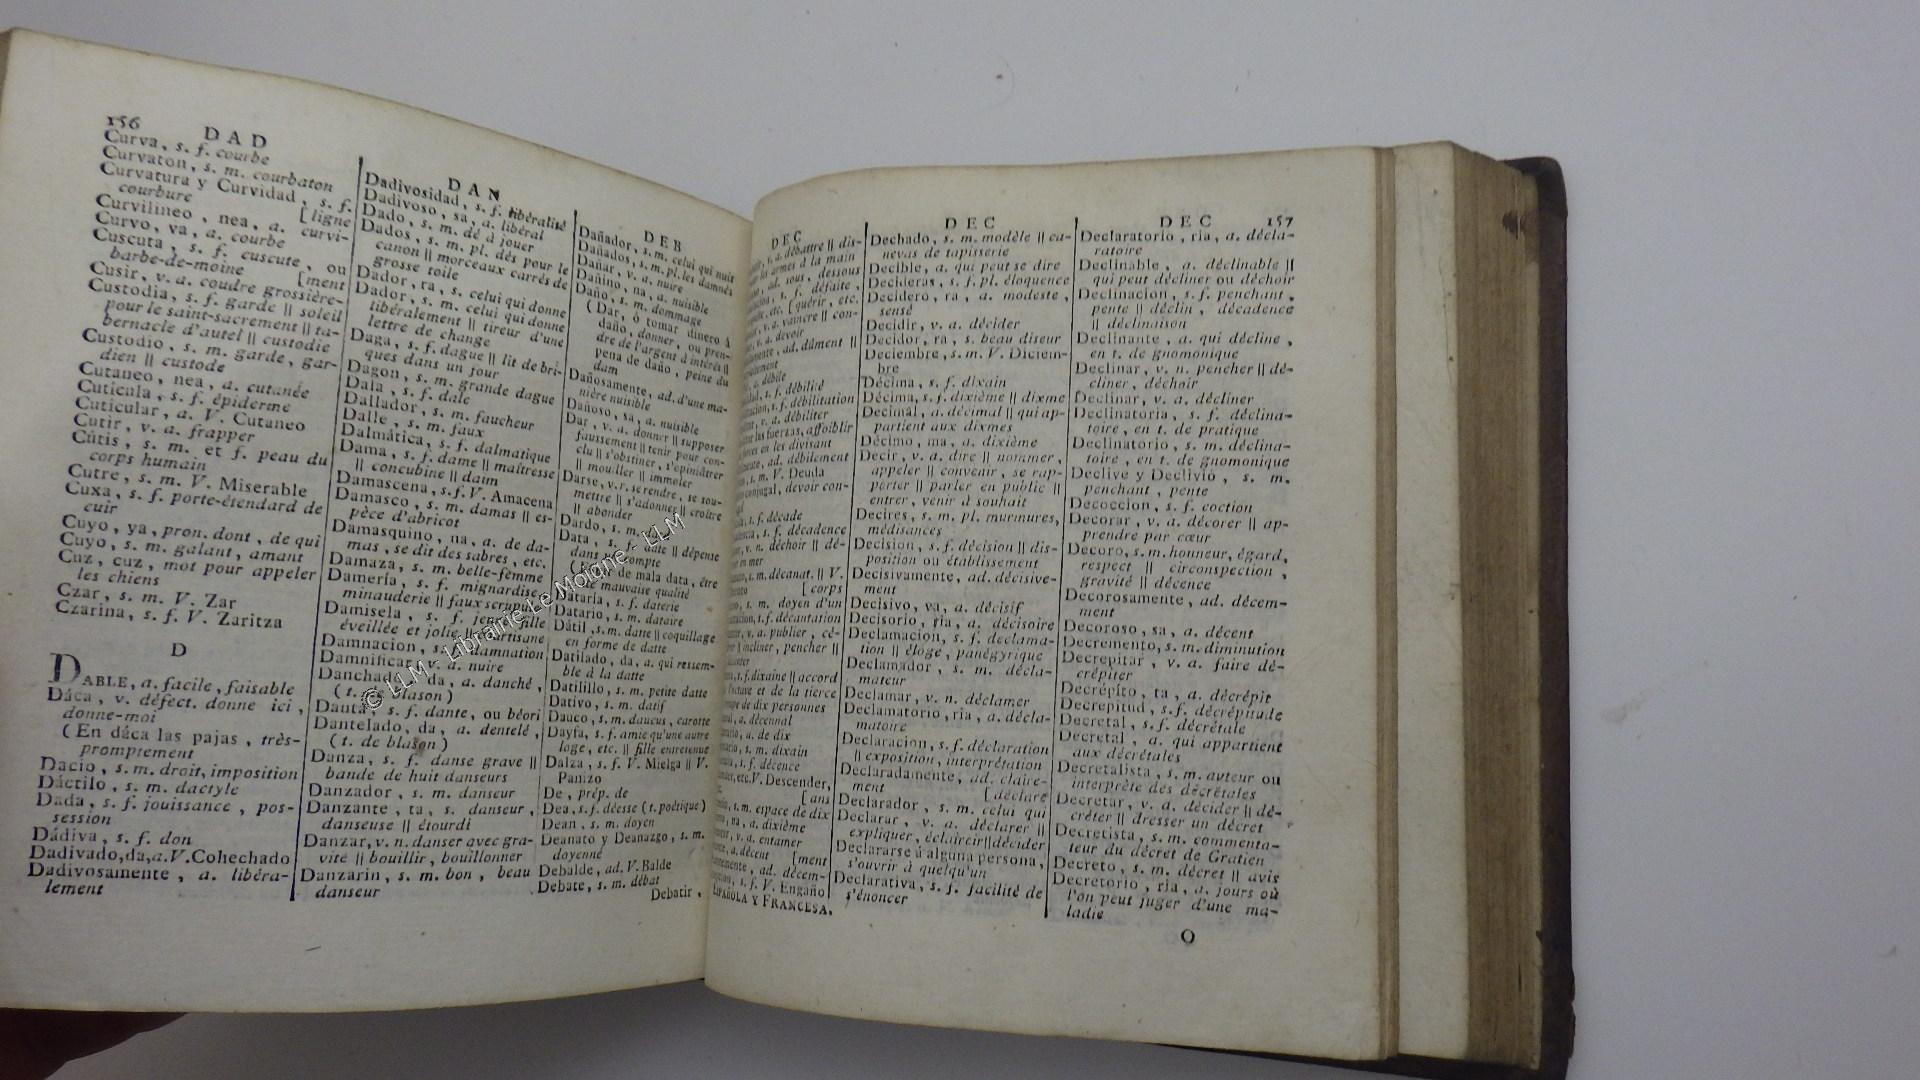 156 DAD
Curva, s. f. courbe
Curvaton, s. m. courbaton
Curvatura y Curvidad, s. f.
courbure [ligne
Curvilineo, nea, a. curvi-
Curvo, va, a. courbe
Cuscuta, s. f. cuscute, ou
barbe-de-moine [ment
Cusir, v. a. coudre grossière-
Custodia, s. f. garde || soleil
pour le saint-sacrement || ta-
bernacle d'autel || custodie
Custodio, s. m. garde, gar-
dien || custode
Cutaneo, nea, a. cutanée
Cuticula, s. f. épiderme
Cuticular, a. V. Cutaneo
Cutir, v. a. frapper
Cútis, s. m. et f. peau du
corps humain
Cutre, s. m. V. Miserable
Cuxa, s. f. porte-étendard de
cuir
Cuyo, ya, pron. dont, de qui
Cuyo, s. m. galant, amant
Cuz, cuz, mot pour appeler
les chiens
Czar, s. m. V. Zar
Czarina, s. f. V. Zaritza
D
DABLE, a. facile, faisable
Dáca, v. défect. donne ici,
donne-moi
(En dáca las pajas, très-
promptement
Dacio, s. m. droit, imposition
Dáctilo, s. m. dactyle
Dada, s. f. jouissance, pos-
session
Dádiva, s. f. don
Dadivado, da, a. V. Cohechado
Dadivosamente, a. libéra-
lement
DAN
Dadivosidad, s. f. libéralité
Dadivoso, sa, a. libéral
Dado, s. m. dé à jouer
Dados, s. m. pl. dés pour le
canon || morceaux carrés de
grosse toile
Dador, ra, s. celui qui donne
Dador, s. m. celui qui donne
libéralement || tireur d'une
lettre de change
Daga, s. f. dague || lit de bri-
ques dans un jour
Dagon, s. m. grande dague
Dala, s. f. dale
Dallador, s. m. faucheur
Dalle, s. m. faux
Dalmática, s. f. dalmatique
Dama, s. f. dame || maîtresse
|| concubine || daim
Damascena, s. f. V. Amacena
Damasco, s. m. damas || es-
pèce d'abricot
Damasquino, na, a. de da-
mas, se dit des sabres, etc.
Damaza, s. m. belle-femme
Damería, s. f. mignardise
minauderie || faux scrupule
Damisela, s. f. jeune fille
éveillée et jolie || courtisane
Damnacion, s. f. damnation
Damnificar, v. a. nuire
Danchado, da, a. danché,
(t. de blason)
Danta, s. f. dante, ou béori
Dantelado, da, a. dentelé,
(t. de blason)
Danza, s. f. danse grave ||
bande de huit danseurs
Danzador, s. m. danseur
Danzante, ta, s. danseur,
danseuse || étourdi
Danzar, v. n. danser avec gra-
vité || bouillir, bouillonner
Danzarin, s. m. bon, beau
danseur
DEB
Dañador, s. m. celui qui nuit
Dañados, s. m. pl. les damnés
Dañar, v. a. nuire
Dañino, na, a. nuisible
Daño, s. m. dommage
(Dar, ò tomar dinero á
daño, donner, ou pren-
dre de l'argent à intérêts ||
pena de daño, peine du
dam
Dañosamente, ad. d'une ma-
nière nuisible
Dañoso, sa, a. nuisible
Dar, v. a. donner || supposer
faussement || tenir pour con-
clu || s'obstiner, s'opiniâtrer
|| mouiller || immoler
Darse, v. r. se rendre, se sou-
mettre || s'adonner || croître
|| abonder
Dardo, s. m. dard
Data, s. f. date || dépense
dans un compte
de mala data, être
de mauvaise qualité
Dataría, s. f. daterie
Datario, s. m. dataire
Dátil, s. m. datte || coquillage
en forme de datte
Datilado, da, a. qui ressem-
ble à la datte
Datilillo, s. m. petite datte
Dativo, s. m. datif
Dauco, s. m. daucus, carotte
Dayfa, s. f. amie qu'une autre
loge, etc. || fille entretenue
Dalza, s. f. V. Mielga || V.
Panizo
De, prép. de
Dea, s. f. déesse (t. poétique)
Dean, s. m. doyen
Deanato y Deanazgo, s. m.
doyenné
Debalde, ad. V. Balde
Debate, s. m. débat
Debatir,
DEC
v. a. débattre || dis-
les armes à la main
ad. sous, dessous
s. f. défaite,
etc. [quérir, etc.
v. a. vaincre || con-
v. a. devoir
ad. dûment ||
a. débile
s. f. débilité
s. f. débilitation
v. a. débiliter
las fuerzas, affoiblir
forces en les divisant
ad. débilement
s. m. V. Deuda
conjugal, devoir con-
s. f. décade
s. f. décadence
v. n. déchoir || dé-
en mer
s. m. décanat. || V.
[corps
s. m. doyen d'un
s. f. décantation
v. a. publier, cé-
|| incliner, pencher ||
s. f. dixaine || accord
l'octave et de la tierce
de dix personnes
a. décennal
a. de dix
s. m. dixain
s. f. décence
etc. V. Descender,
[ans
s. m. espace de dix
na, a. dixième
v. a. entamer
a. décent [ment
ad. décem-
s. f. V. Engaño
ESPAÑOLA Y FRANCESA.
DEC
Dechado, s. m. modèle || ca-
nevas de tapisserie
Decible, a. qui peut se dire
Decideras, s. f. pl. éloquence
Decidero, ra, a. modeste,
sensé
Decidir, v. a. décider
Decidor, ra, s. beau diseur
Deciembre, s. m. V. Diciem-
bre
Décima, s. f. dixain
Décima, s. f. dixième || dixme
Decimál, a. décimal || qui ap-
partient aux dixmes
Décimo, ma, a. dixième
Decir, v. a. dire || nommer,
appeler || convenir, se rap-
porter || parler en public ||
entrer, venir à souhait
Decires, s. m. pl. murmures,
médisances
Decision, s. f. décision || dis-
position ou établissement
Decisivamente, ad. décisive-
ment
Decisivo, va, a. décisif
Decisorio, ria, a. décisoire
Declamacion, s. f. declama-
tion || éloge, panégyrique
Declamador, s. m. décla-
mateur
Declamar, v. n. déclamer
Declamatorio, ria, a. décla-
matoire
Declaracion, s. f. déclaration
|| exposition, interprétation
Declaradamente, ad. claire-
ment [déclare
Declarador, s. m. celui qui
Declarar, v. a. déclarer ||
expliquer, éclaircir || décider
Declararse á alguna persona,
s'ouvrir à quelqu'un
Declarativa, s. f. facilité de
s'énoncer
DEC 157
Declaratorio, ria, a. décla-
ratoire
Declinable, a. déclinable ||
qui peut décliner ou déchoir
Declinacion, s. f. penchant,
pente || déclin, décadence
|| déclinaison
Declinante, a. qui décline,
en t. de gnomonique
Declinar, v. n. pencher || dé-
cliner, déchoir
Declinar, v. a. décliner
Declinatoria, s. f. déclina-
toire, en t. de pratique
Declinatorio, s. m. déclina-
toire, en t. de gnomonique
Declive y Declivio, s. m.
penchant, pente
Decoccion, s. f. coction
Decorar, v. a. décorer || ap-
prendre par cœur
Decoro, s. m. honneur, égard,
respect || circonspection,
gravité || décence
Decorosamente, ad. décem-
ment
Decoroso, sa, a. décent
Decremento, s. m. diminution
Decrepitar, v. a. faire dé-
crépiter
Decrépito, ta, a. décrépit
Decrepitud, s. f. décrépitude
Decretal, s. f. décrétale
Decretal, a. qui appartient
aux décrétales
Decretalista, s. m. auteur ou
interprète des décrétales
Decretar, v. a. décider || dé-
créter || dresser un décret
Decretista, s. m. commenta-
teur du décret de Gratien
Decreto, s. m. décret || avis
Decretorio, ria, a. jours où
l'on peut juger d'une ma-
ladie
O
© LLM - Librairie Le Moiane - LLM